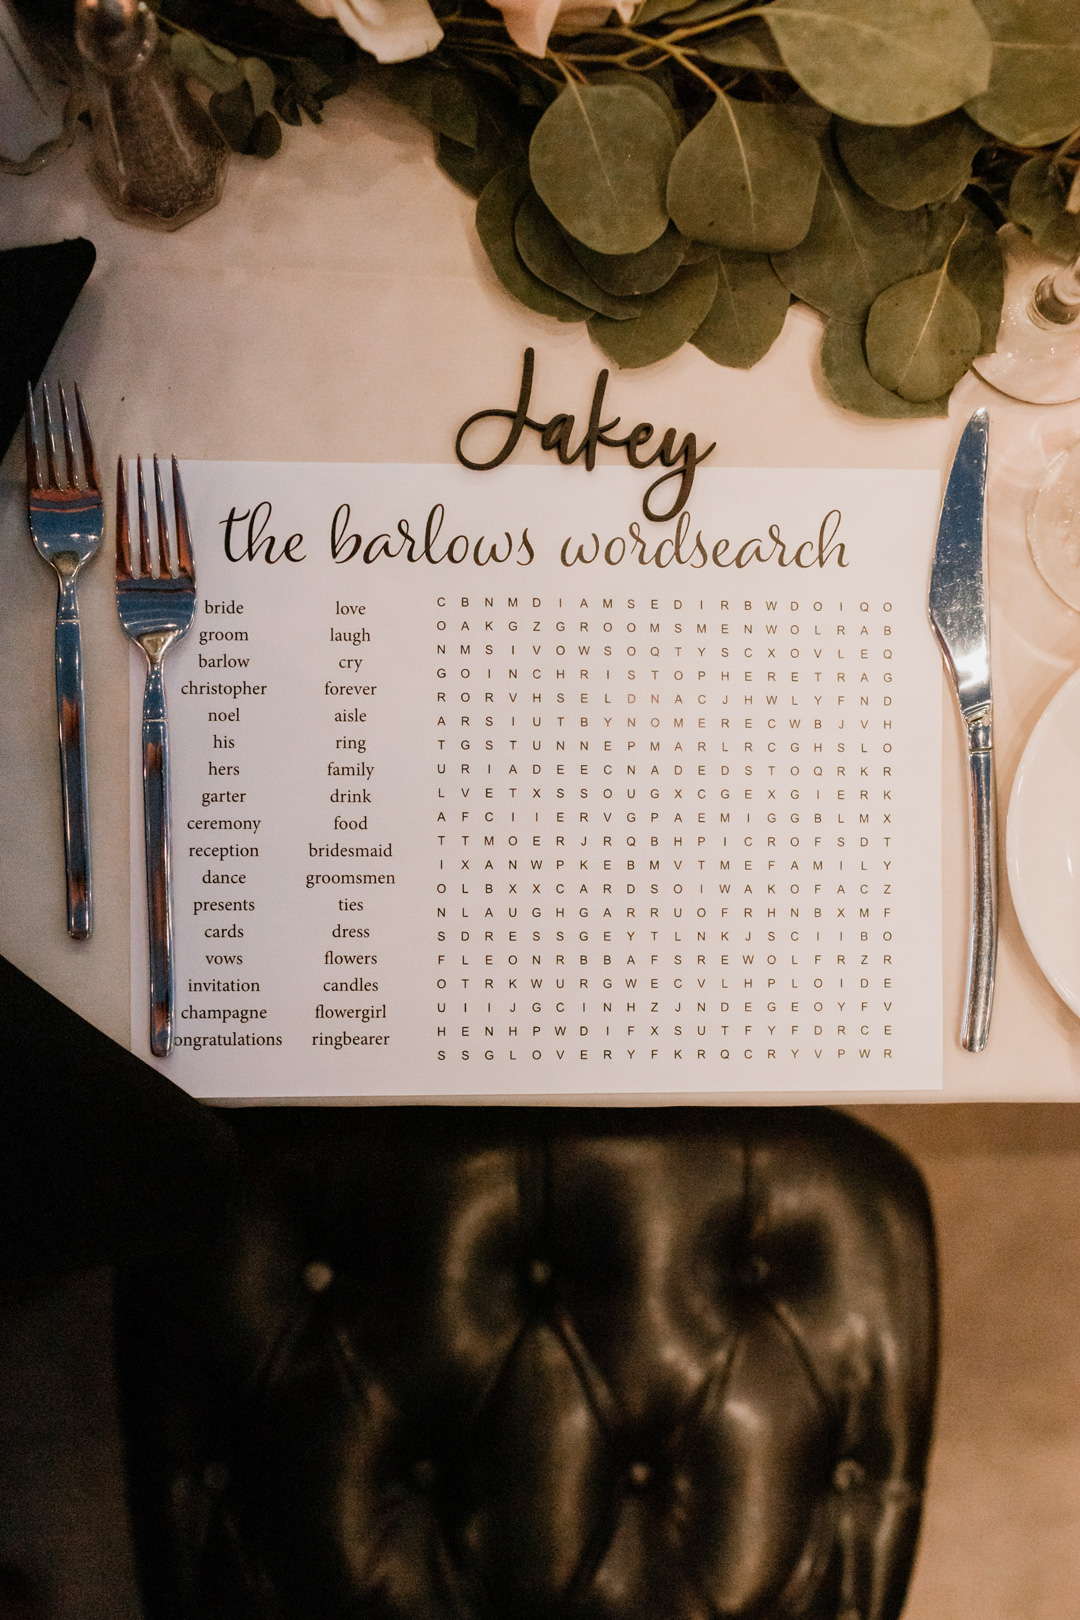 Jakey
the barlows wordsearch
bride love
groom laugh
barlow cry
christopher forever
noel aisle
his ring
hers family
garter drink
ceremony food
reception bridesmaid
dance groomsmen
presents ties
cards dress
vows flowers
invitation candles
champagne flowergirl
ongratulations ringbearer
C B N M D I A M S E D I R B W D O I Q O
O A K G Z G R O O M S M E N W O L R A B
N M S I V O W S O Q T Y S C X O V L E Q
G O I N C H R I S T O P H E R E T R A G
R O R V H S E L D N A C J H W L Y F N D
A R S I U T B Y N O M E R E C W B J V H
T G S T U N N E P M A R L R C G H S L O
U R I A D E E C N A D E D S T O Q R K R
L V E T X S S O U G X C G E X G I E R K
A F C I I E R V G P A E M I G G B L M X
T T M O E R J R Q B H P I C R O F S D T
I X A N W P K E B M V T M E F A M I L Y
O L B X X C A R D S O I W A K O F A C Z
N L A U G H G A R R U O F R H N B X M F
S D R E S S G E Y T L N K J S C I I B O
F L E O N R B B A F S R E W O L F R Z R
O T R K W U R G W E C V L H P L O I D E
U I I J G C I N H Z J N D E G E O Y F V
H E N H P W D I F X S U T F Y F D R C E
S S G L O V E R Y F K R Q C R Y V P W R